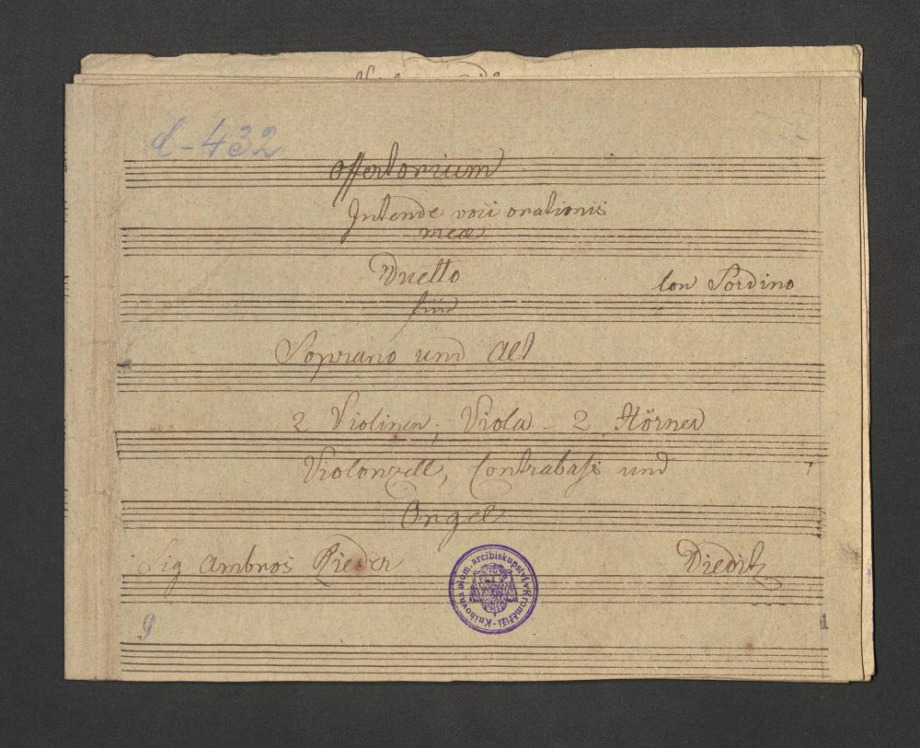 C-432
Offertorium
Intende voci orationis
meæ
Duetto
für
Con Sordino
Soprano und Alt
2 Violinen, Viola - 2 Hörner
Violonzell, Contrabaß und
Orgel
Sig Ambros Rieder
Diedik
Knihovna olom. arcibiskupství v Kroměříži
9
1